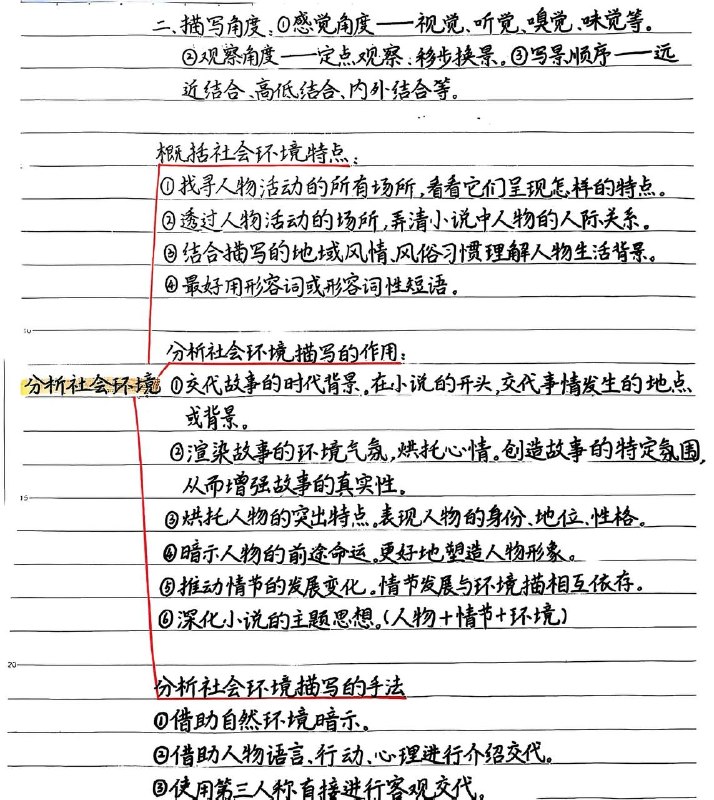 二、描写角度:①感觉角度——视觉、听觉、嗅觉、味觉等。
②观察角度——定点观察、移步换景。③写景顺序——远
近结合、高低结合、内外结合等。
概括社会环境特点:
①找寻人物活动的所有场所,看看它们呈现怎样的特点。
②透过人物活动的场所,弄清小说中人物的人际关系。
③结合描写的地域风情、风俗习惯理解人物生活背景。
④最好用形容词或形容词性短语。
10
分析社会环境描写的作用:
分析社会环境
①交代故事的时代背景。在小说的开头,交代事情发生的地点
或背景。
②渲染故事的环境气氛,烘托心情。创造故事的特定氛围,
从而增强故事的真实性。
15
③烘托人物的突出特点。表现人物的身份、地位、性格。
④暗示人物的前途命运。更好地塑造人物形象。
⑤推动情节的发展变化。情节发展与环境描相互依存。
⑥深化小说的主题思想。(人物+情节+环境)
20
分析社会环境描写的手法
①借助自然环境暗示。
②借助人物语言、行动、心理进行介绍交代。
③使用第三人称直接进行客观交代。